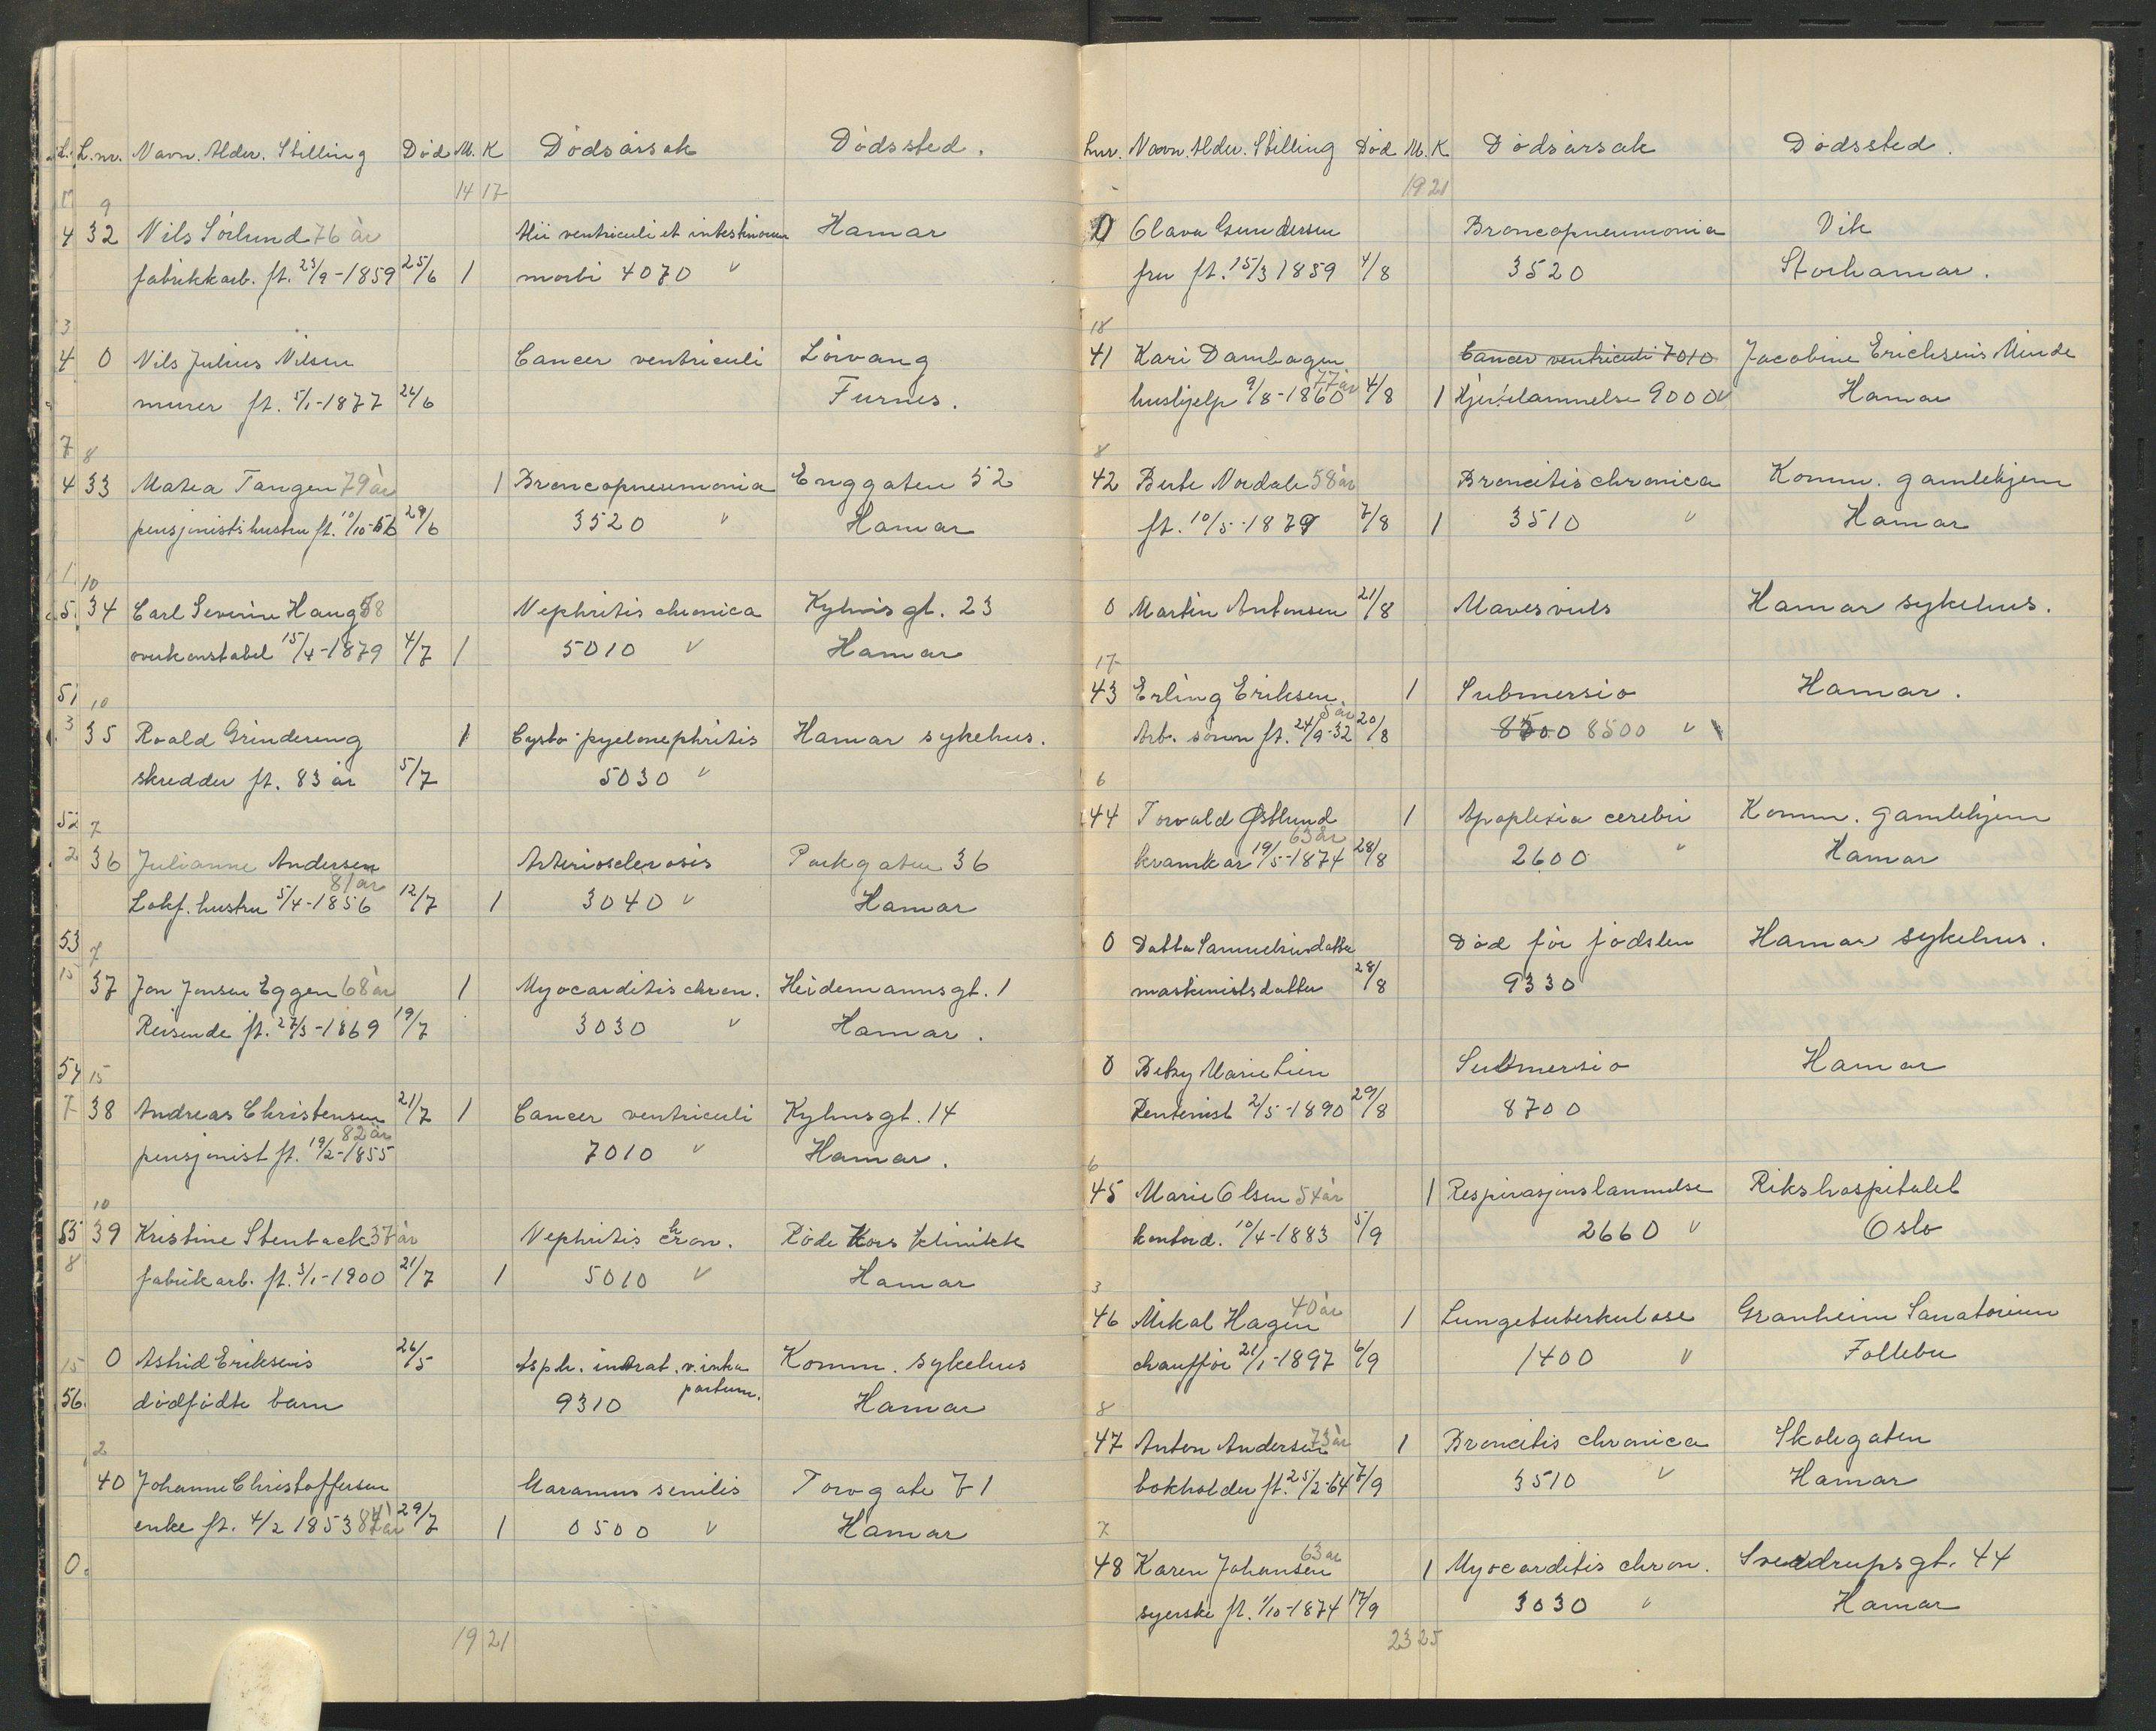 L. L.nr. Navn. Alder. Stilling Død M. K Dødsårsak Dødssted.
14 17
9
4 32 Nils Sörlund 76 år Alii ventriculi et intestinorum Hamar
fabrikkarb. ft. 23/9-1859 25/6 1 morbi 4070 v
3
4 0 Nils Julius Nilsen Cancer ventriculi Lörvang
murer ft. 5/1-1877 26/6 Furnes.
7 8
4 33 Matea Tangen 79 år 1 Broncopneumonia Enggaten 52
pensjonistshustru ft. 10/10-56 29/6 3520 v Hamar
1 10
5. 34 Carl Severin Haug 58 Nephritis chronica Kyhnsgt. 23
overkonstabel 15/4-1879 4/7 1 5010 v Hamar
51 10
3 35 Roald Grindereng 1 Cysto-pyelonephritis Hamar sykehus.
skredder ft. 83 år 5/7 5030 v
52 7
2 36 Julianne Andersen Arteriosclerosis Parkgaten 36
81 år
Lokf. hustru 5/4-1856 12/7 1 3040 v Hamar
53 7
15 37 Jon Jonsen Eggen 68 år 1 Myocarditis chron. Heidemannsgt. 1
Reisende ft. 27/3-1869 19/7 3030 v Hamar.
54 15
7 38 Andreas Christensen 21/7 1 Cancer ventriculi Kyhnsgt. 14
82 år
pensjonist ft. 19/2-1855 7010 v Hamar.
10
55 39 Kristine Stenback 37 år Nephritis chron. Röde Kors klinikk
8 fabrikarb. ft. 3/1-1900 21/7 1 5010 v Hamar
15 0 Astrid Eriksens 26/5 Asph. intrat. v. intra Komm. sykehus
partum.
56. dödfödte barn 9310 Hamar
2
40 Johanne Christoffersen Maramus senilis Torvgate 71
enke ft. 4/2 1853 84 år 29/7 1 0500 v Hamar
0.
19 21
Lnr. Navn. Alder. Stilling Død M. K Dødsårsak Dødssted.
19 21
0 Olava Gundersen Broncopneumonia Vik
fru ft. 15/3 1859 4/8 3520 Storhamar.
18
41 Kari Dambagen Cancer ventriculi 7010 Jacobine Erichsens Minde
77 år
hushjelp 9/8-1860 4/8 1 Hjertelammelse 9000 v Hamar
8
42 Berte Nordale 58 år Broncitis chronica Komm. gamlehjem
ft. 10/5-1879 7/8 1 3510 v Hamar
0 Martin Antonsen 21/8 Mavesvuls Hamar sykehus.
17
43 Erling Eriksen 1 Submersio Hamar.
5 år
Arb. sönn ft. 24/9-32 20/8 8700 8500 v
6
44 Torvald Østlund 1 Apoplexia cerebri Komm. gamlehjem
63 år
kramkar 19/5-1874 28/8 2600 v Hamar
0 Datta Samuelsinsdatter Död før fødslen Hamar sykehus.
maskinistsdatter 28/8 9330
0 Betzy Marie Lien Submersio Hamar
Rentenist 2/5-1890 29/8 8700
6
45 Marie Olsen 54 år 1 Respirasjonslammelse Rikshospitalet
kontord. 10/4-1883 5/9 2660 v Oslo
3
40 år
46 Mikal Hagen 1 Lungetuberkulose Granheim Sanatorium
chauffør 21/1-1897 6/9 1400 v Follebu
8
47 Anton Andersen 73 år 1 Broncitis chronica Skolegaten
bokholder ft. 25/2-64 7/9 3510 v Hamar
7
63 år
48 Karen Johansen 1 Myocarditis chron. Sverdrupsgt. 44
syerske ft. 1/10-1874 17/9 3030 v Hamar
23 25